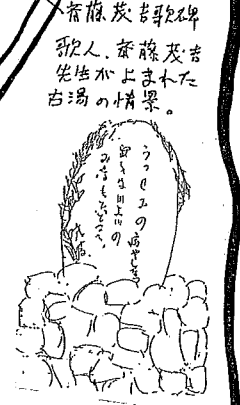 斎藤茂吉歌碑
歌人、斎藤茂吉
先生がよまれた
古湯の情景。
うつせみの病やしなふ
川上川の
みなもとどころ